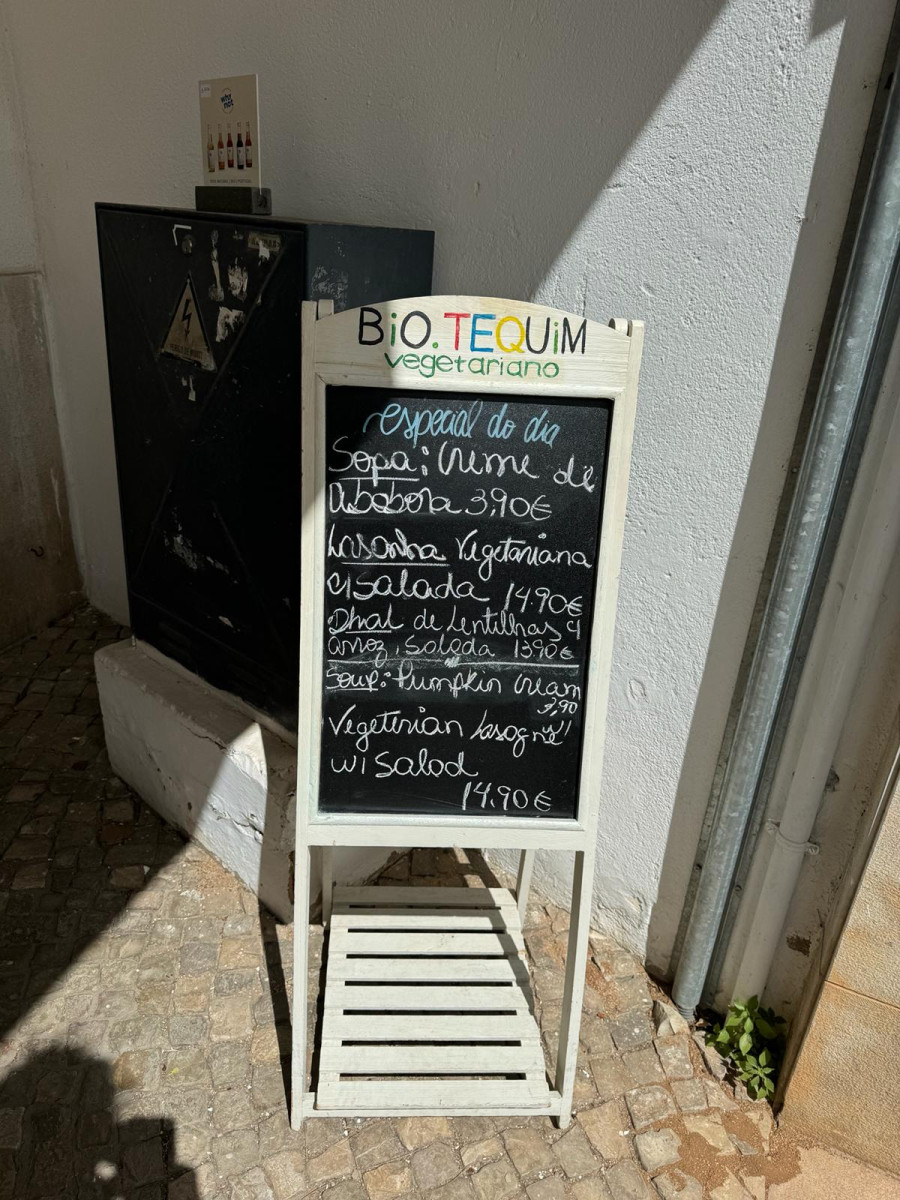 BiO.TEQUiM
vegetariano
especial do dia
Sopa: Creme de
Abobora 3,90€
Lasanha Vegetariana
c/Salada 14.90€
Dhal de Lentilhas c/
arroz, Salada 13.90€
Soup: Pumpkin Cream
3,90
Vegeterian Lasagne
w/ Salad
14.90€